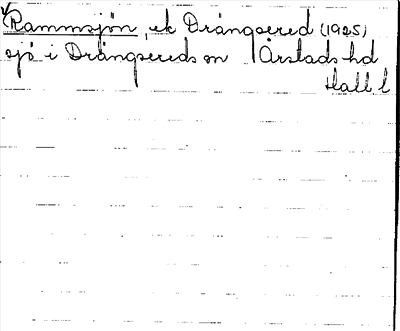 Rammsjön, ek Drängsered (1925)
sjö i Drängsereds sn Årstads hd
Hall l